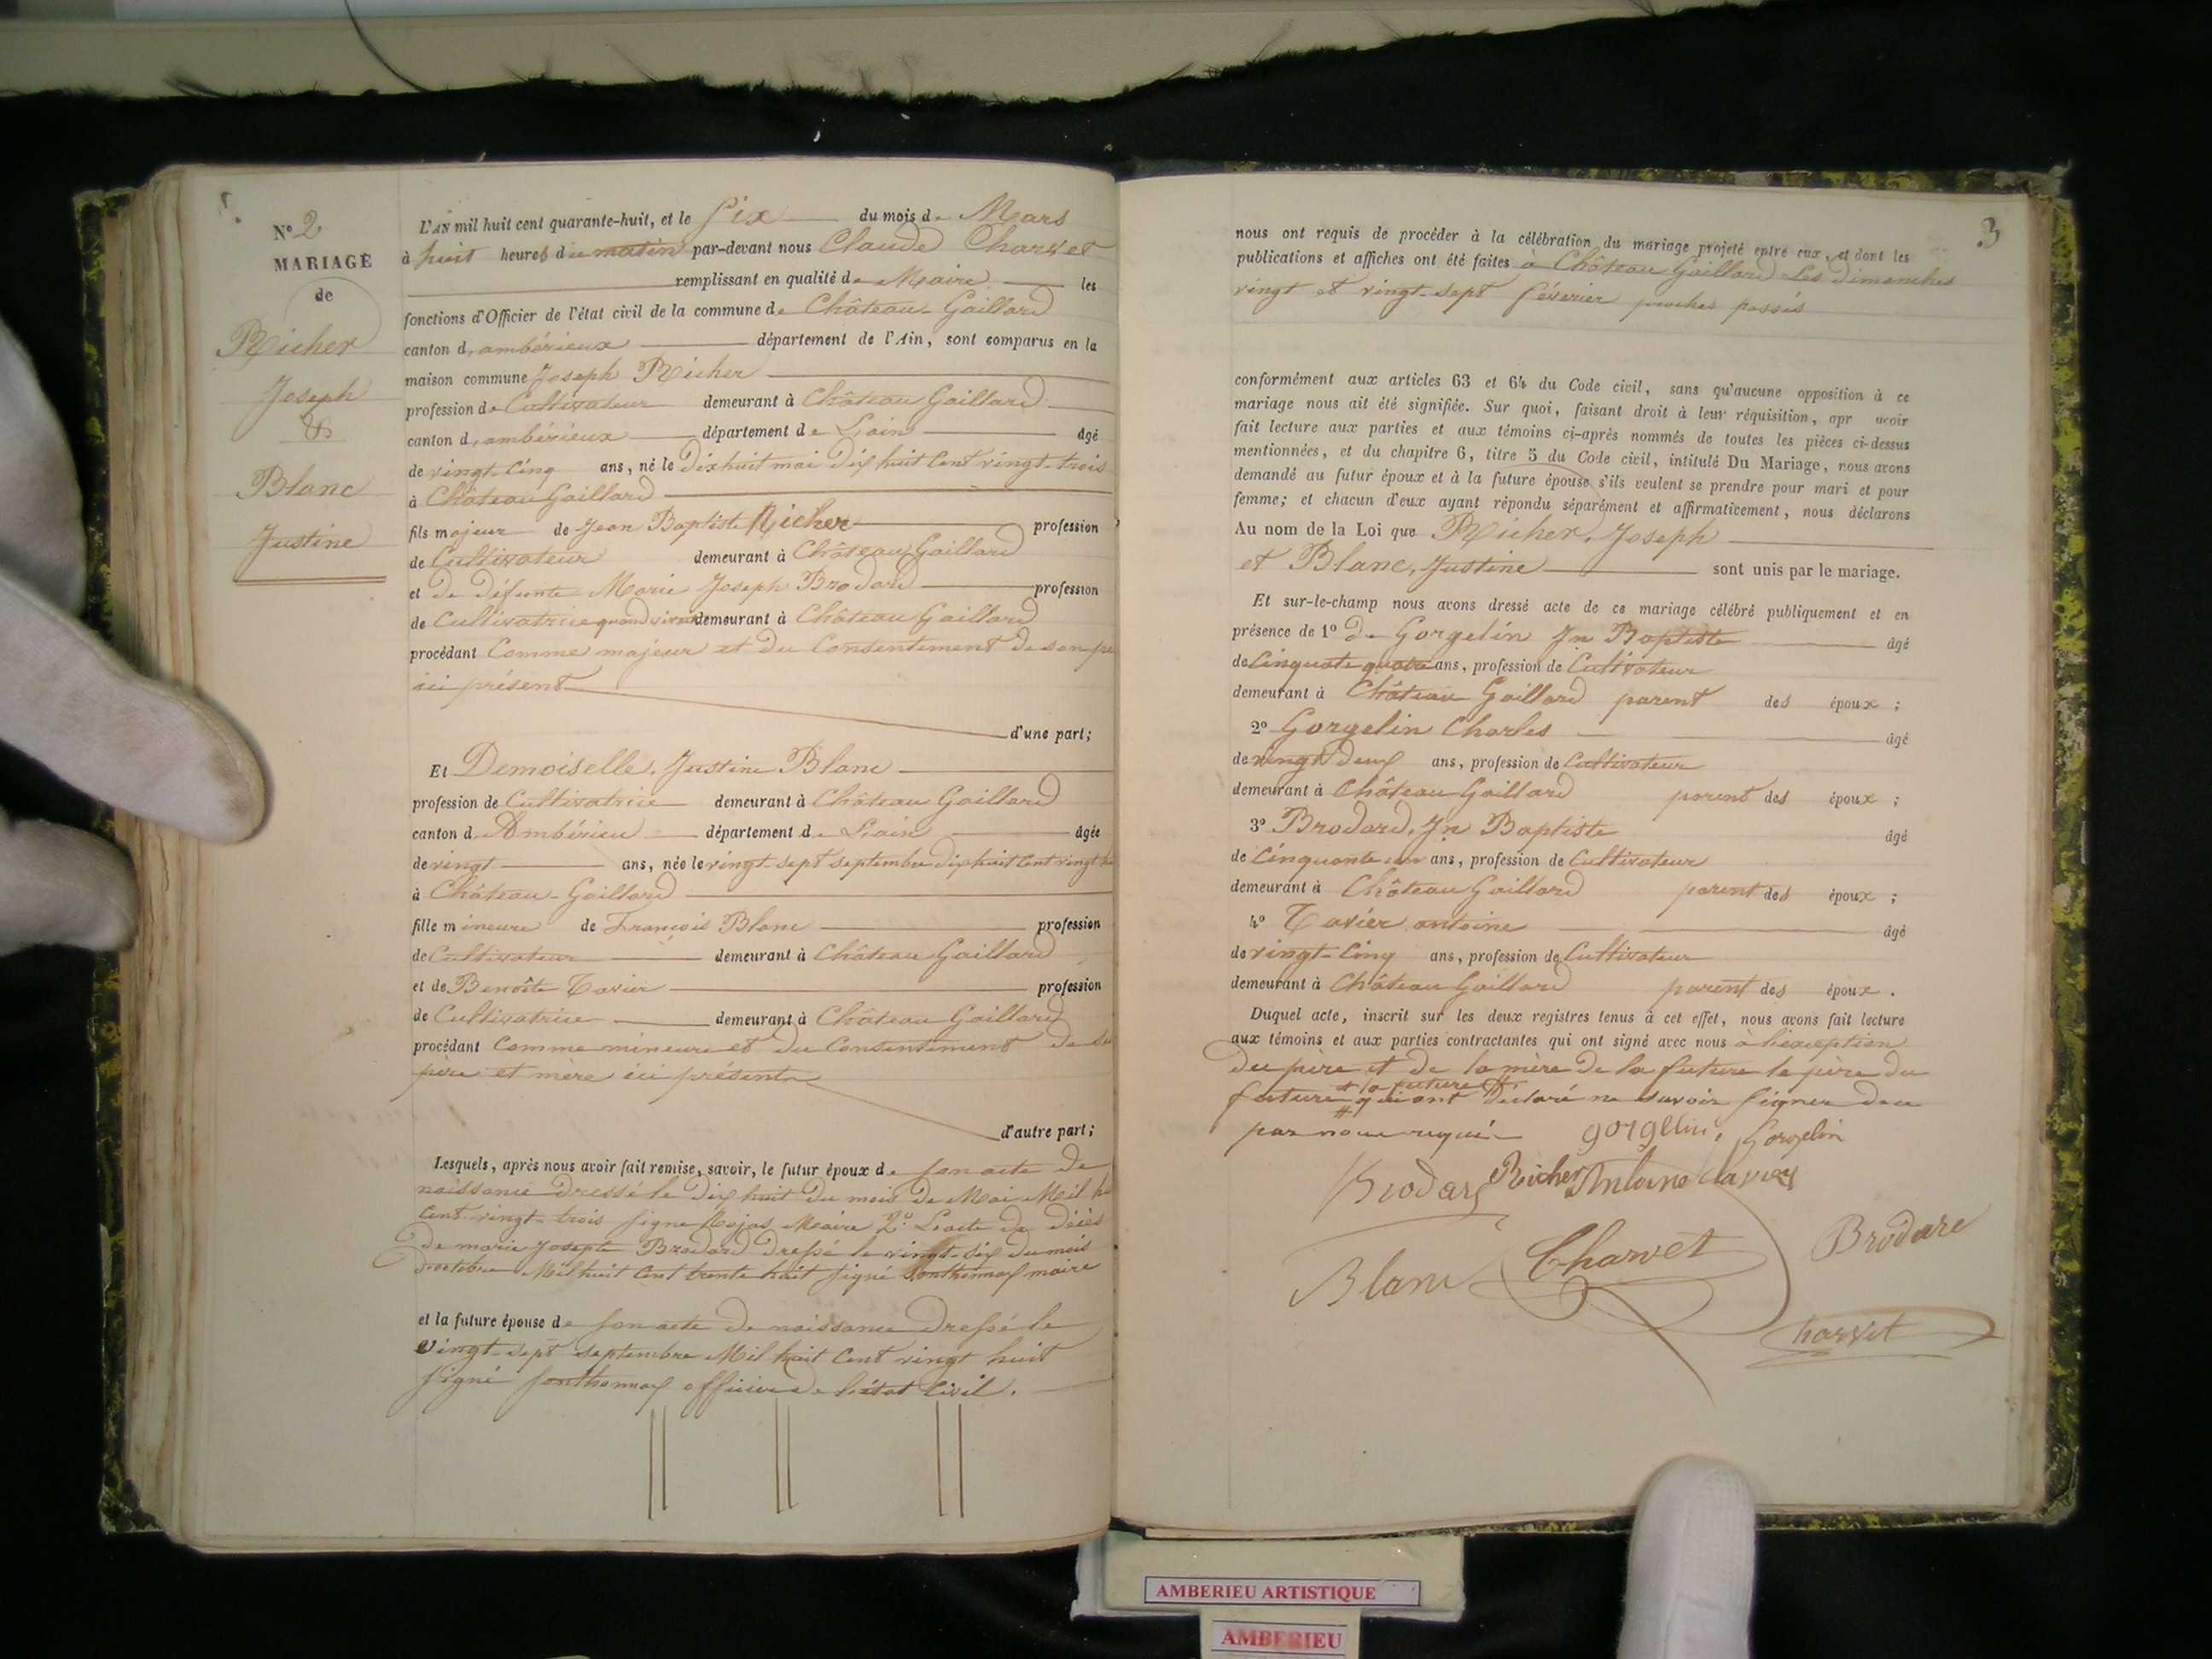 N° 2
MARIAGE
de
Richer
Joseph
&
Blanc
Justine
L'AN mil huit cent quarante-huit, et le six du mois de Mars
à huit heures du matin par-devant nous Claude Charvet
remplissant en qualité de Maire les
fonctions d'Officier de l'état civil de la commune de Château-Gaillard
canton d'ambérieux département de l'Ain, sont comparus en la
maison commune Joseph Richer
profession de Cultivateur demeurant à Château Gaillard
canton d'ambérieux département de L'ain âgé
de vingt-cinq ans, né le Dixhuit mai Dix huit Cent vingt-trois
à Château Gaillard
fils majeur de Jean Baptiste Richer profession
de Cultivateur demeurant à Château Gaillard
et de Défunte Marie Joseph Brodard profession
de Cultivatrice quand vivait demeurant à Château Gaillard
procédant Comme majeur et du Consentement de son
ici présent
d'une part;
Et Demoiselle Justine Blanc
profession de Cultivatrice demeurant à Château Gaillard
canton d'Ambérieu département de L'ain âgée
de vingt ans, née le vingt-sept septembre dix huit Cent vingt
à Château-Gaillard
fille mineure de François Blanc profession
de Cultivateur demeurant à Château Gaillard
et de Benoîte Tavier profession
de Cultivatrice demeurant à Château Gaillard
procédant Comme mineure et du Consentement de
père et mère ici présents
d'autre part;
Lesquels, après nous avoir fait remise, savoir, le futur époux de son acte de
naissance dressé le Dix huit du mois de Mai Mil
Cent vingt-trois signé Maire 2° L'acte de décès
de marie Joseph Brodard dressé le vingt-six du mois
d'octobre Mil huit Cent trente huit signé maire
et la future épouse de son acte de naissance dressé le
vingt-sept septembre Mil huit Cent vingt huit
signé officier de l'état Civil.
3
nous ont requis de procéder à la célébration du mariage projeté entre eux, et dont les
publications et affiches ont été faites à Château Gaillard Les Dimanches
vingt et vingt-sept février proches passés
conformément aux articles 63 et 64 du Code civil, sans qu'aucune opposition à ce
mariage nous ait été signifiée. Sur quoi, faisant droit à leur réquisition, apr avoir
fait lecture aux parties et aux témoins ci-après nommés de toutes les pièces ci-dessus
mentionnées, et du chapitre 6, titre 5 du Code civil, intitulé Du Mariage, nous avons
demandé au futur époux et à la future épouse s'ils veulent se prendre pour mari et pour
femme; et chacun d'eux ayant répondu séparément et affirmativement, nous déclarons
Au nom de la Loi que Richer, Joseph
et Blanc, Justine sont unis par le mariage.
Et sur-le-champ nous avons dressé acte de ce mariage célébré publiquement et en
présence de 1° De Gorgelin Jn Baptiste âgé
de Cinquate quatre ans, profession de Cultivateur
demeurant à Château Gaillard parent des époux ;
2° Gorgelin Charles âgé
de vingt Deux ans, profession de Cultivateur
demeurant à Château Gaillard parent des époux ;
3° Brodard, Jn Baptiste âgé
de Cinquante un ans, profession de Cultivateur
demeurant à Château Gaillard parent des époux ;
4° Tavier antoine âgé
de vingt-Cinq ans, profession de Cultivateur
demeurant à Château Gaillard parent des époux.
Duquel acte, inscrit sur les deux registres tenus à cet effet, nous avons fait lecture
aux témoins et aux parties contractantes qui ont signé avec nous à l'exception
du père et de la mère de la future le père du
et la future #
future # qui ont Déclaré ne savoir signer de ce
par nous requis gorgelin, Gorgelin
Brodard Richer Antoine tavier
Blanc Charvet Brodare
Charvet
AMBERIEU ARTISTIQUE
AMBERIEU